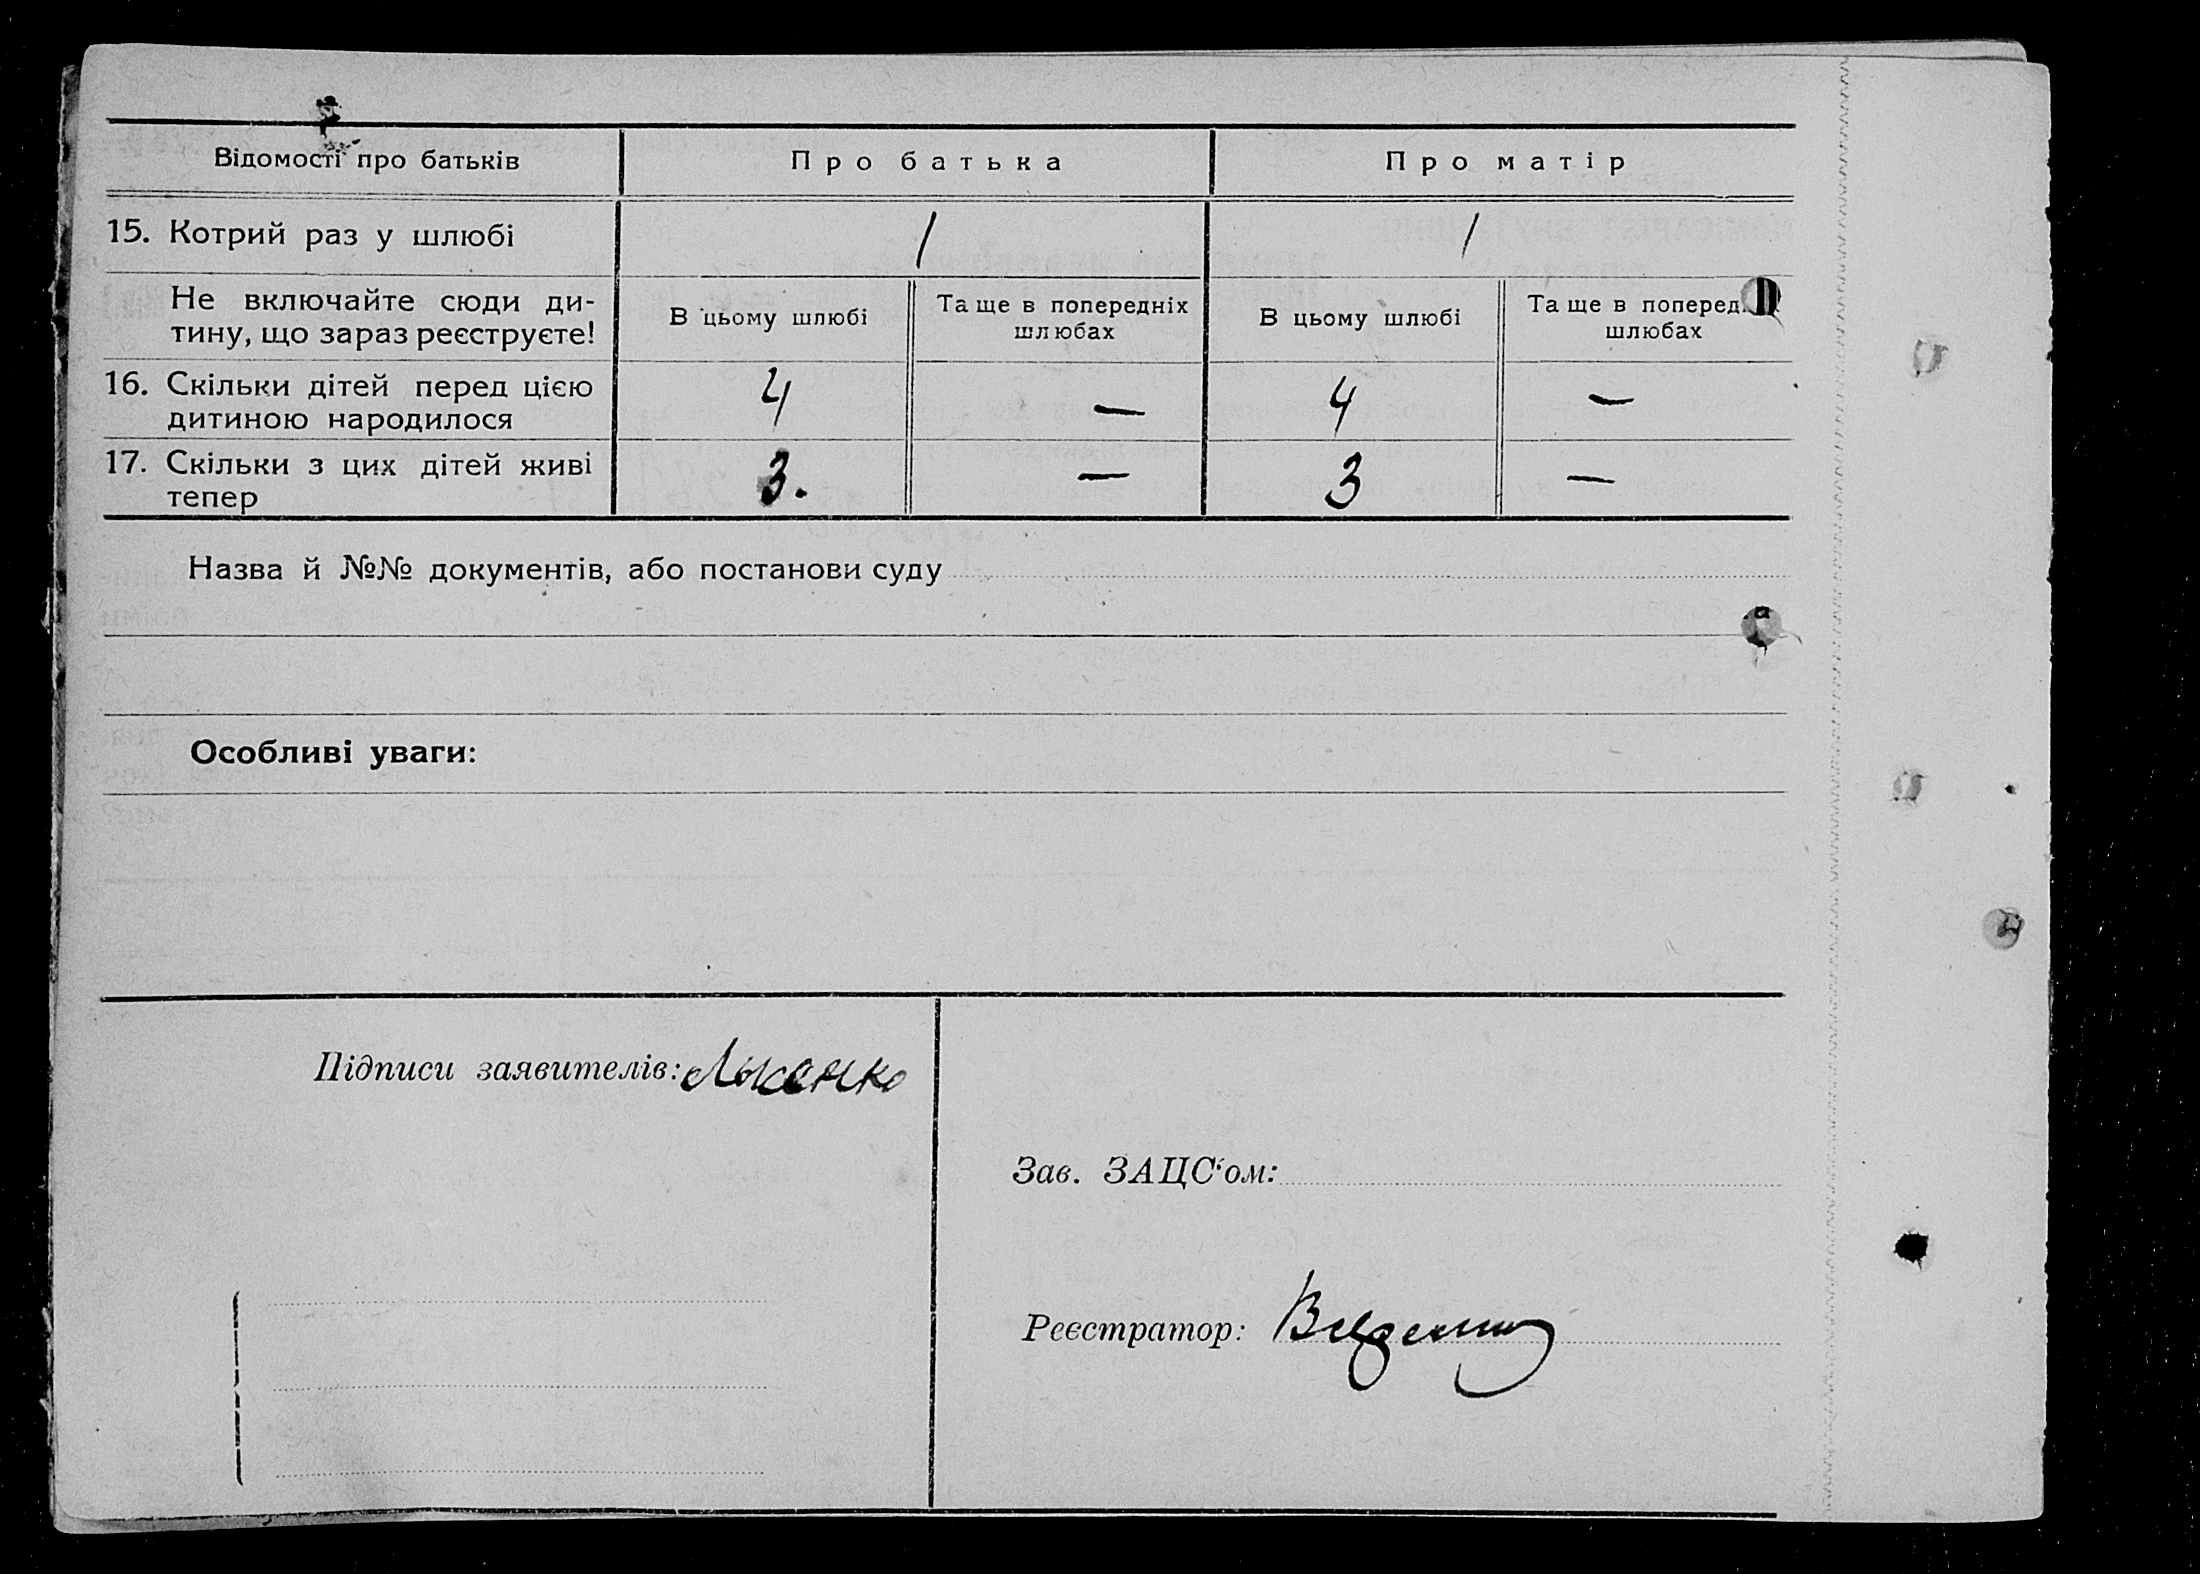 Відомості про батьків Про батька Про матір
15. Котрий раз у шлюбі 1 1
Не включайте сюди ди-
тину, що зараз реєструєте!
В цьому шлюбі
Та ще в попередніх
шлюбах
В цьому шлюбі
Та ще в поперед
шлюбах
16. Скільки дітей перед цією
дитиною народилося
4 — 4 —
17. Скільки з цих дітей живі
тепер
3. — 3 —
Назва й №№ документів, або постанови суду
Особливі уваги:
Підписи заявителів: Лысенко
Зав. ЗАЦС'ом:
Реєстратор: